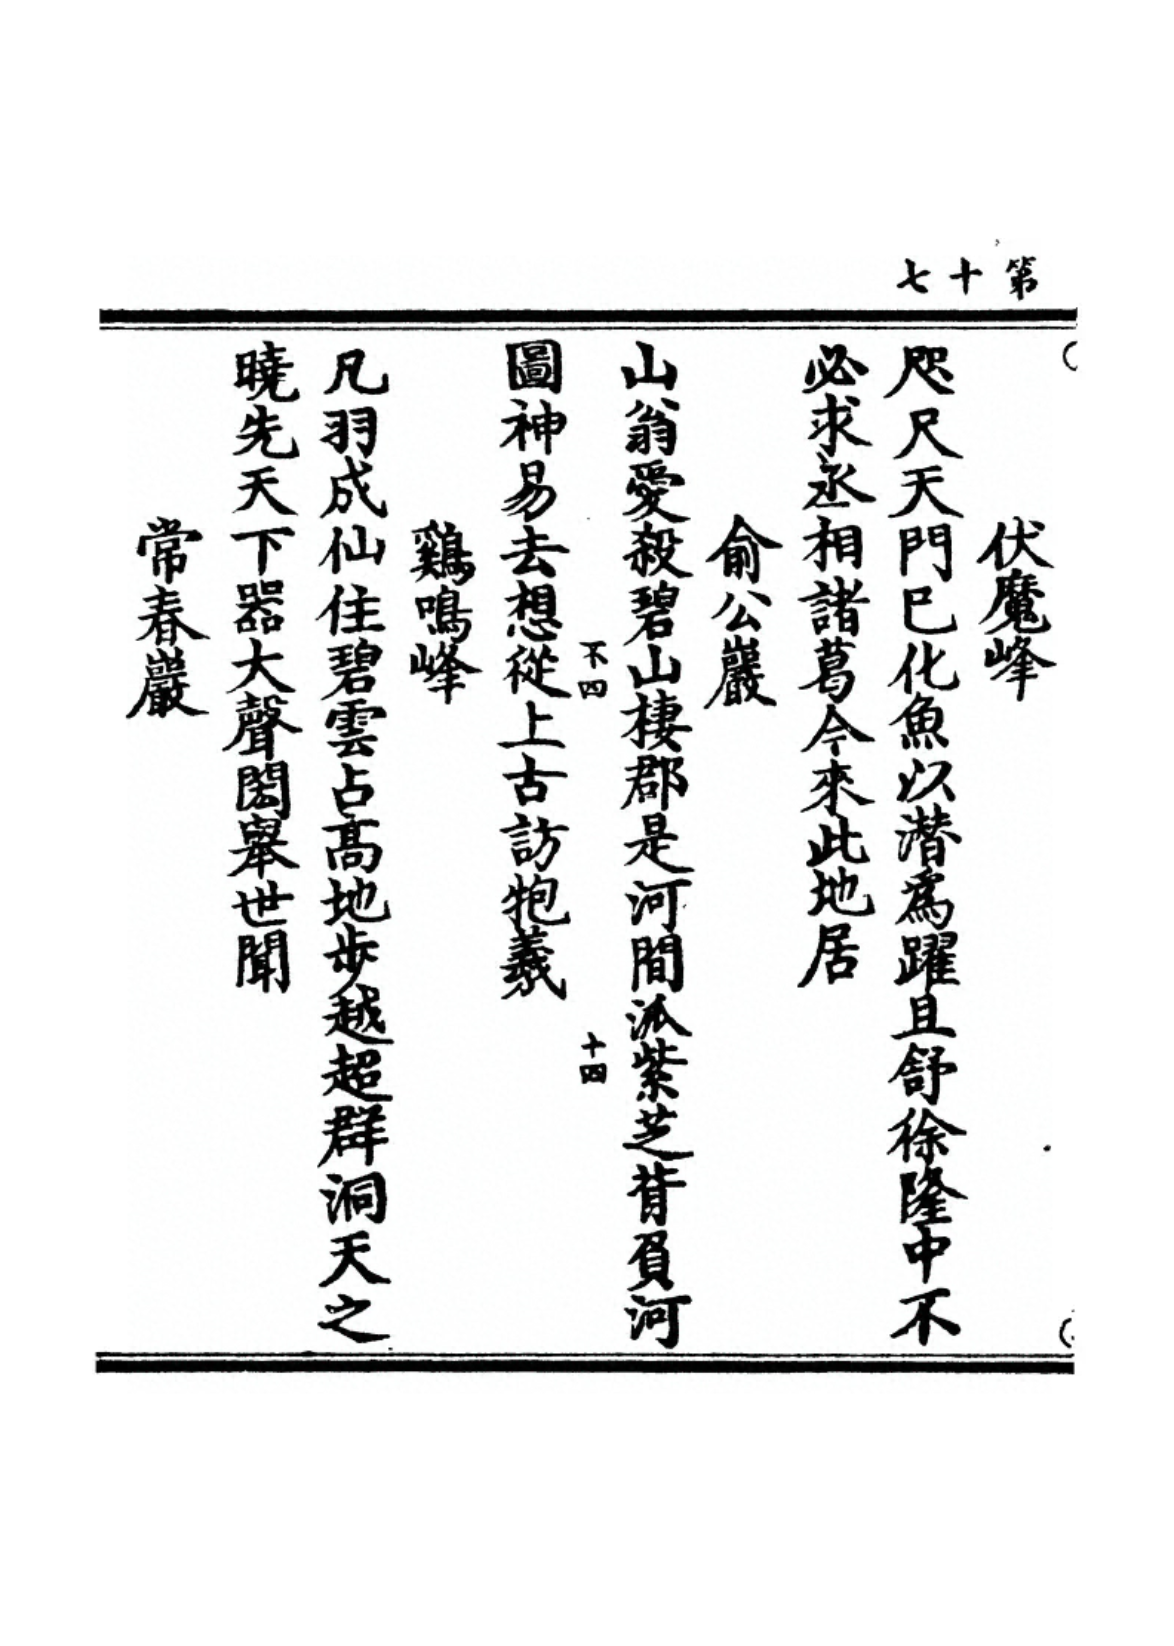 第十七
伏魔峰
咫尺天門已化魚以潛為躍且舒徐隆中不
必求丞相諸葛今來此地居
俞公巖
山翁愛殺碧山棲郡是河間派紫芝背負河
不四
十四
圖神易去想從上古訪牠羲
鷄鳴峰
凡羽成仙住碧雲占高地步越超群洞天之
曉先天下器大聲閎舉世聞
常春巖